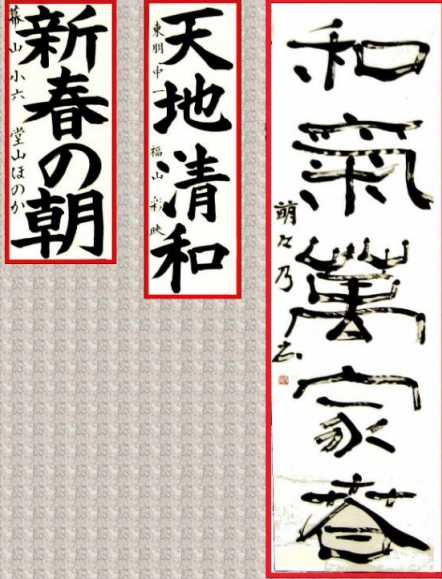 和氣萬家春
萌々乃
天地清和
東朋中一 福山 彩映
新春の朝
幕山小六 堂山ほのか